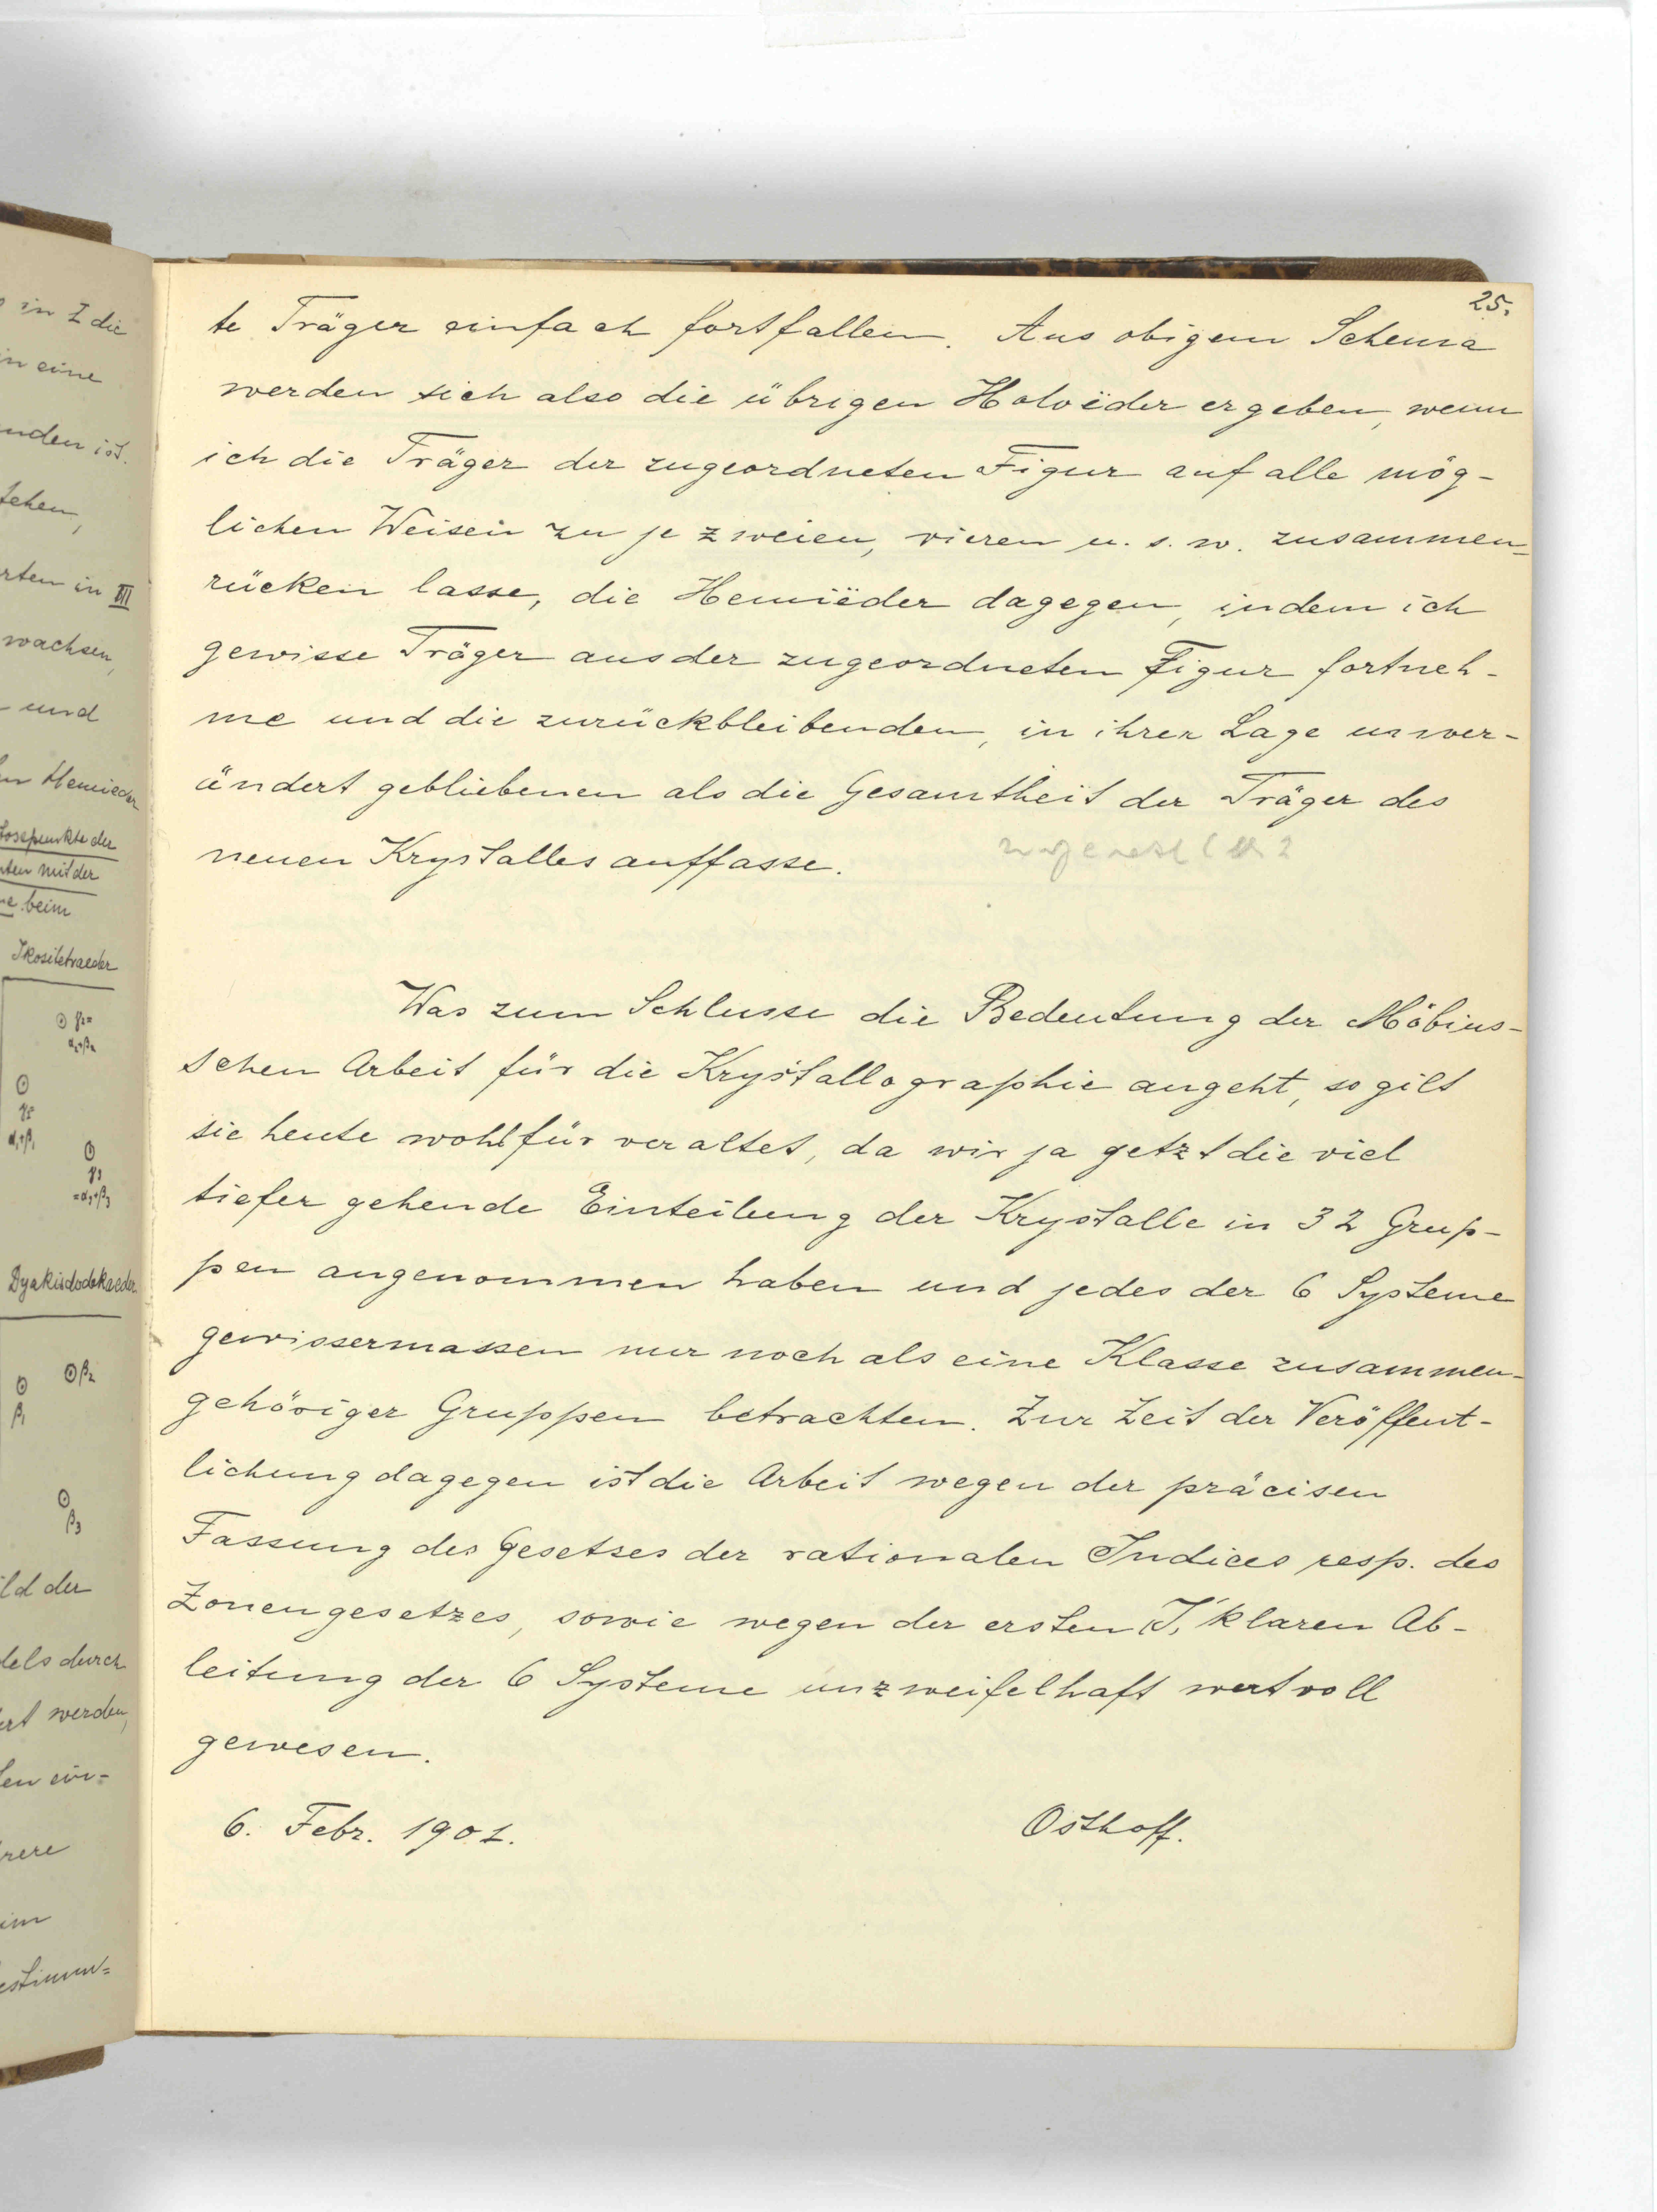 25.
te Träger einfach fortfallen. Aus obigem Schema
werden sich also die übrigen Holoëder ergeben, wenn
ich die Träger der zugeordneten Figur auf alle mög-
lichen Weisen zu je zweien, vieren u. s. w. zusammen-
rücken lasse, die Hemiëder dagegen, indem ich
gewisse Träger aus der zugeordneten Figur fortneh-
me und die zurückbleibenden, in ihrer Lage unver-
ändert gebliebenen als die Gesamtheit der Träger des
neuen Krystalles auffasse.
Was zum Schlusse die Bedeutung der Möbius-
schen Arbeit für die Krystallographie angeht, so gilt
sie heute wohl für veraltet, da wir ja getzt die viel
tiefer gehende Einteilung der Krystalle in 32 Grup-
pen angenommen haben und jedes der 6 Systeme
gewissermassen nur noch als eine Klasse zusammen-
gehöriger Gruppen betrachten. Zur Zeit der Veröffent-
lichung dagegen ist die Arbeit wegen der präcisen
Fassung des Gesetses der rationalen Indices resp. des
Zonengesetzes, sowie wegen der ersten klaren Ab-
leitung der 6 Systeme unzweifelhaft wertvoll
gewesen.
6. Febr. 1901.
Osthoff.
in Z die
in eine
ist.
in III
wachsen,
und
Hemieder
der
mit der
beim
Ikositetraeder
γ2=
α2+β2
γ1=
α1+β1
γ3
=α3+β3
Dyakisdodekaeder
β2
β1
β3
der
durch
werden,